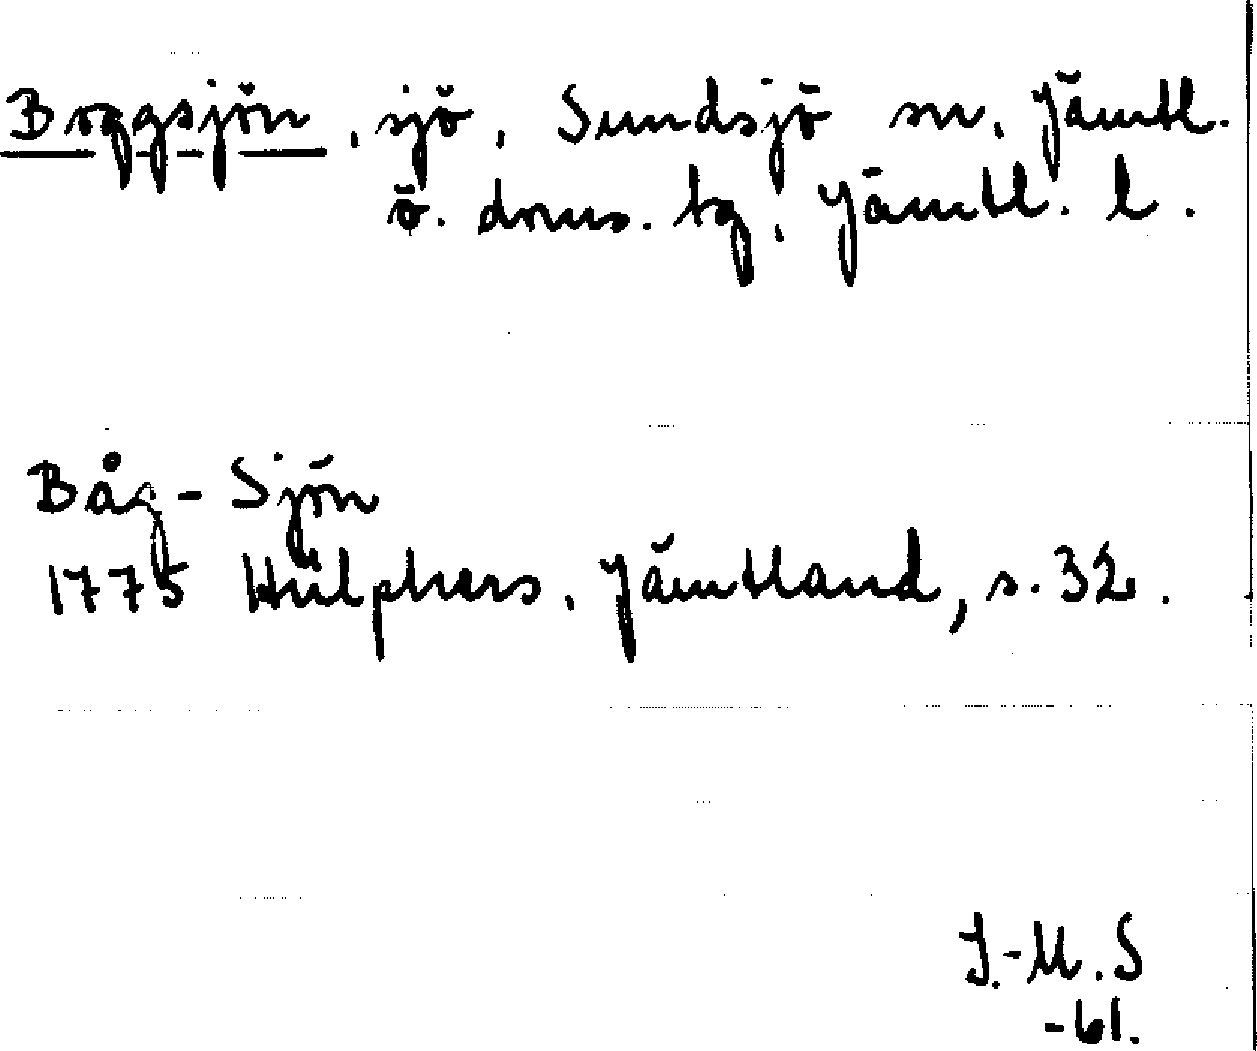 Boggsjön, sjö, Sundsjö sn, Jämtl.
ö. doms. tg, Jämtl. l.
Båg-Sjön
1775 Hülphers, Jämtland, s. 32.
I.-M.S
-61.